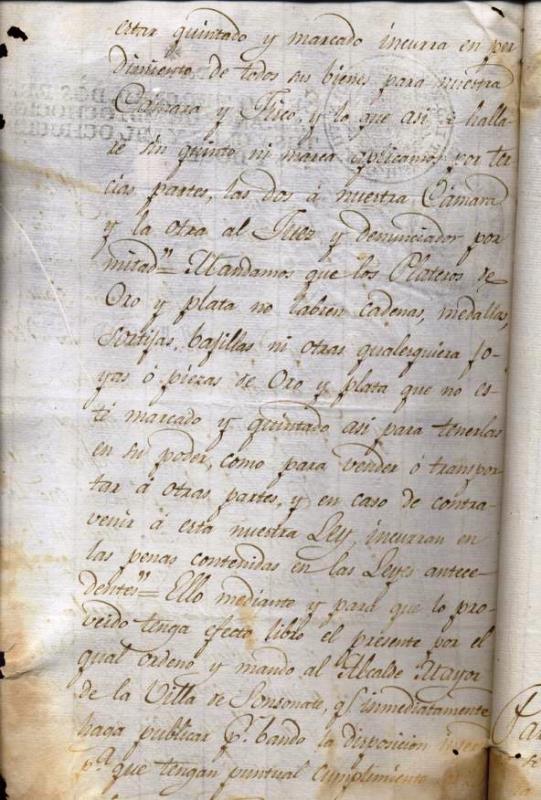 estar quintado y marcado incurra en per
dimiento de todos sus bienes para nuestra
Cámara y Fisco, y lo que asi se halla
re sin quinto ni marca aplicamos por ter
cias partes, las dos á nuestra Cámara
y la otra al Juez y denunciador por
mitad"= Mandamos que los Plateros de
Oro y plata no labren cadenas, medallas,
sortijas, bajillas ni otras qualesquiera jo-
yas ó piezas de Oro y plata que no es-
té marcado y quintado asi para tenerlas
en su poder, como para vender ó transpor-
tar á otras partes, y en caso de contra-
venir á esta nuestra Ley, incurran en
las penas contenidas en las Leyes antece-
dentes"= Ello mediante y para que lo pro-
veido tenga efecto libro el presente por el
qual ordeno y mando al Alcalde Mayor
de la Villa de Sonsonate, q.e inmediatamente
haga publicar p.r bando la disposicion
p.a que tengan puntual cumplimiento
Par